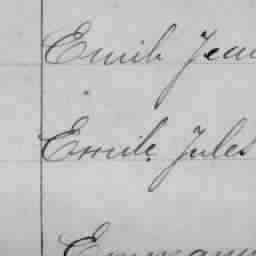 Emile Jean
Emile Jules
Emmanu